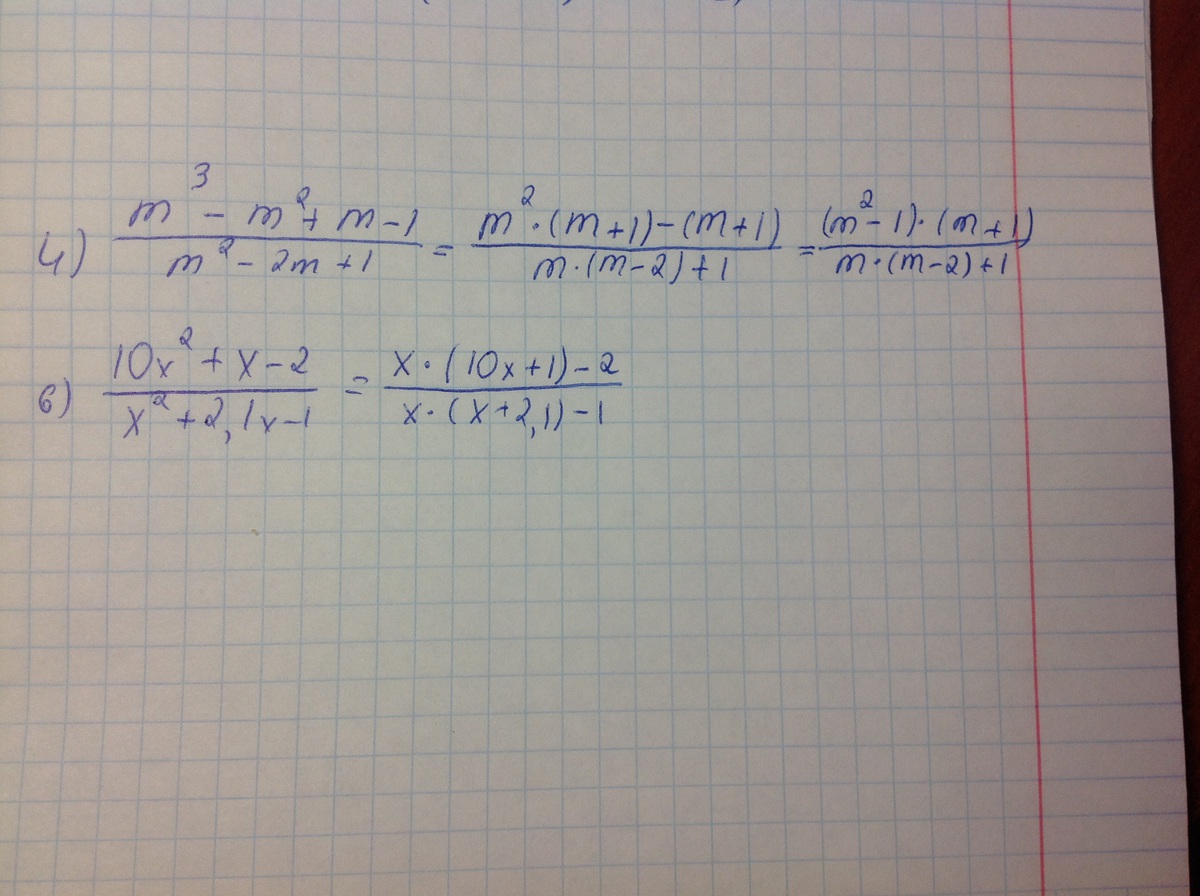 4) (m³ - m² + m - 1)/(m² - 2m + 1) = (m²·(m+1)-(m+1))/(m·(m-2)+1) = ((m²-1)·(m+1))/(m·(m-2)+1)
6) (10x² + x - 2)/(x² + 2,1x - 1) = (x·(10x+1)-2)/(x·(x+2,1)-1)